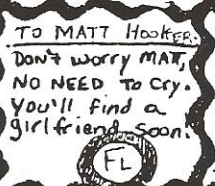 TO MATT HooKER.
DoN't worry MATT,
NO NEED To Cry.
You'll find a
girlfriend soon.
FL